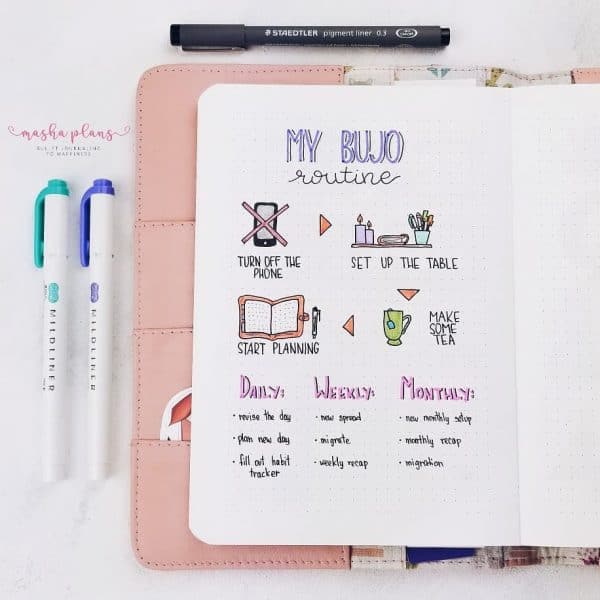 STAEDTLER pigment liner 0.3
masha plans
BULLET JOURNALING
TO HAPPINESS
MILDLINER
MILDLINER
MY BUJO
routine
TURN OFF THE
PHONE
SET UP THE TABLE
START PLANNING
MAKE
SOME
TEA
DAILY:
• revise the day
• plan new day
• fill out habit
tracker
WEEKLY:
• new spread
• migrate
• weekly recap
MONTHLY:
• new monthly setup
• monthly recap
• migration